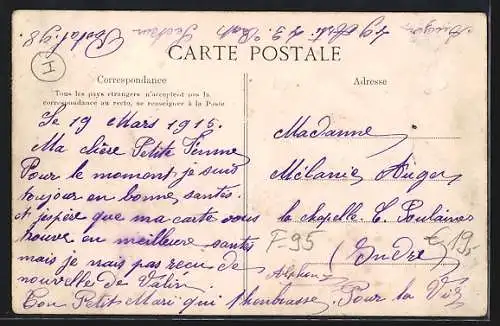 CARTE POSTALE
H
Correspondance
Tous les pays étrangers n'acceptent pas la
correspondance au recto, se renseigner à la Poste
Le 19 Mars 1915.
Ma chère Petite Femme
Pour le moment je suis
toujour en bonne santés
et jespère que ma carte vous
trouve en meilleure santé
mais je nais pas recu de
nouvelle de
Ton Petit Mari qui
Pour la Vie
Adresse
Madame
Mélanie Auger
la chapelle
(Indre)
Alphonse
F-95
€ 19,-